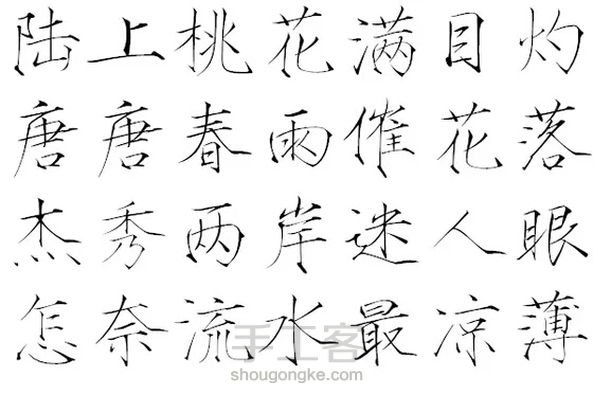 陆上桃花满目灼
唐唐春雨催花落
杰秀两岸迷人眼
怎奈流水最凉薄
手工客
shougongke.com